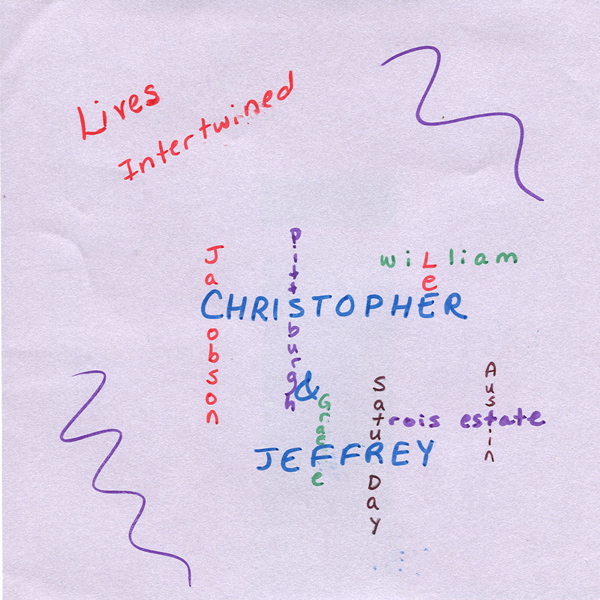 Lives
Intertwined
Jacobson
Pittsburgh
wiLliam
Lee
CHRISTOPHER
&
Saturday
Austin
trois estate
JEFFREY